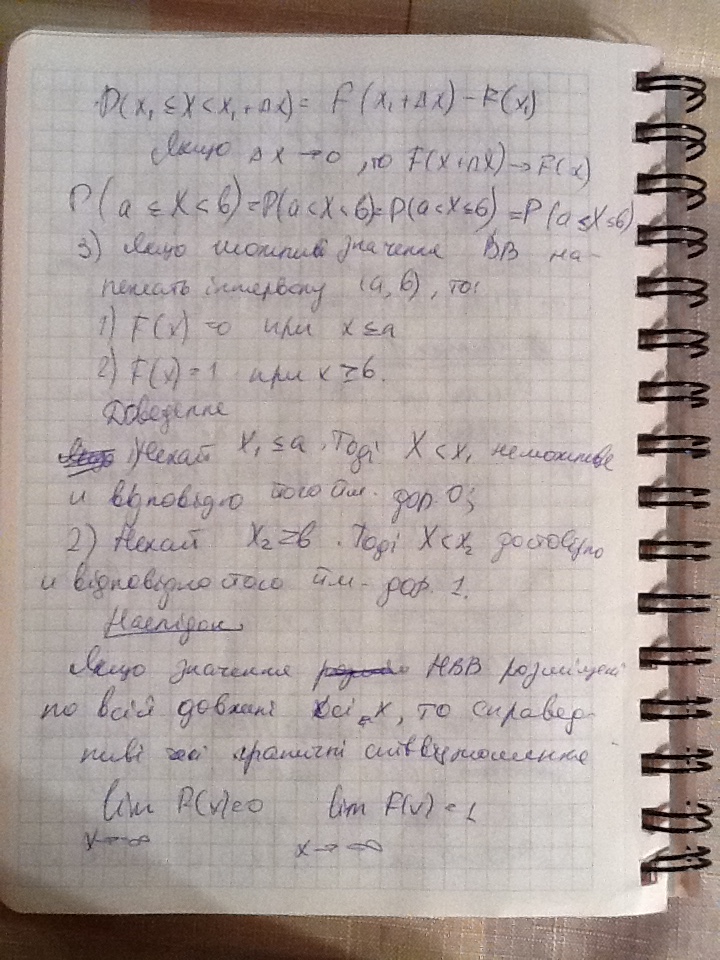 P(x₁ ≤ X < x₁+Δx) = F(x₁+Δx) – F(x₁)
Якщо Δx → 0, то F(x+Δx) → F(x)
P(a ≤ X < b) = P(a < X < b) = P(a < X ≤ b) = P(a ≤ X ≤ b)
3) Якщо можливі значення ВВ на-
лежать інтервалу (a, b), то:
1) F(x) = 0 при x ≤ a
2) F(x) = 1 при x ≥ b.
Доведення
Нехай x₁ ≤ a. Тоді X < x₁ неможлива
и відповідно його йм. дор. 0;
2) Нехай x₂ ≥ b. Тоді X < x₂ достовірно
и відповідно його й-м дор. 1.
Наслідок
Якщо значення НВВ розміщені
по всій довжині осі x, то справед-
ливі граничні співвідношення
lim F(x) = 0 lim F(x) = 1
x → -∞ x → ∞